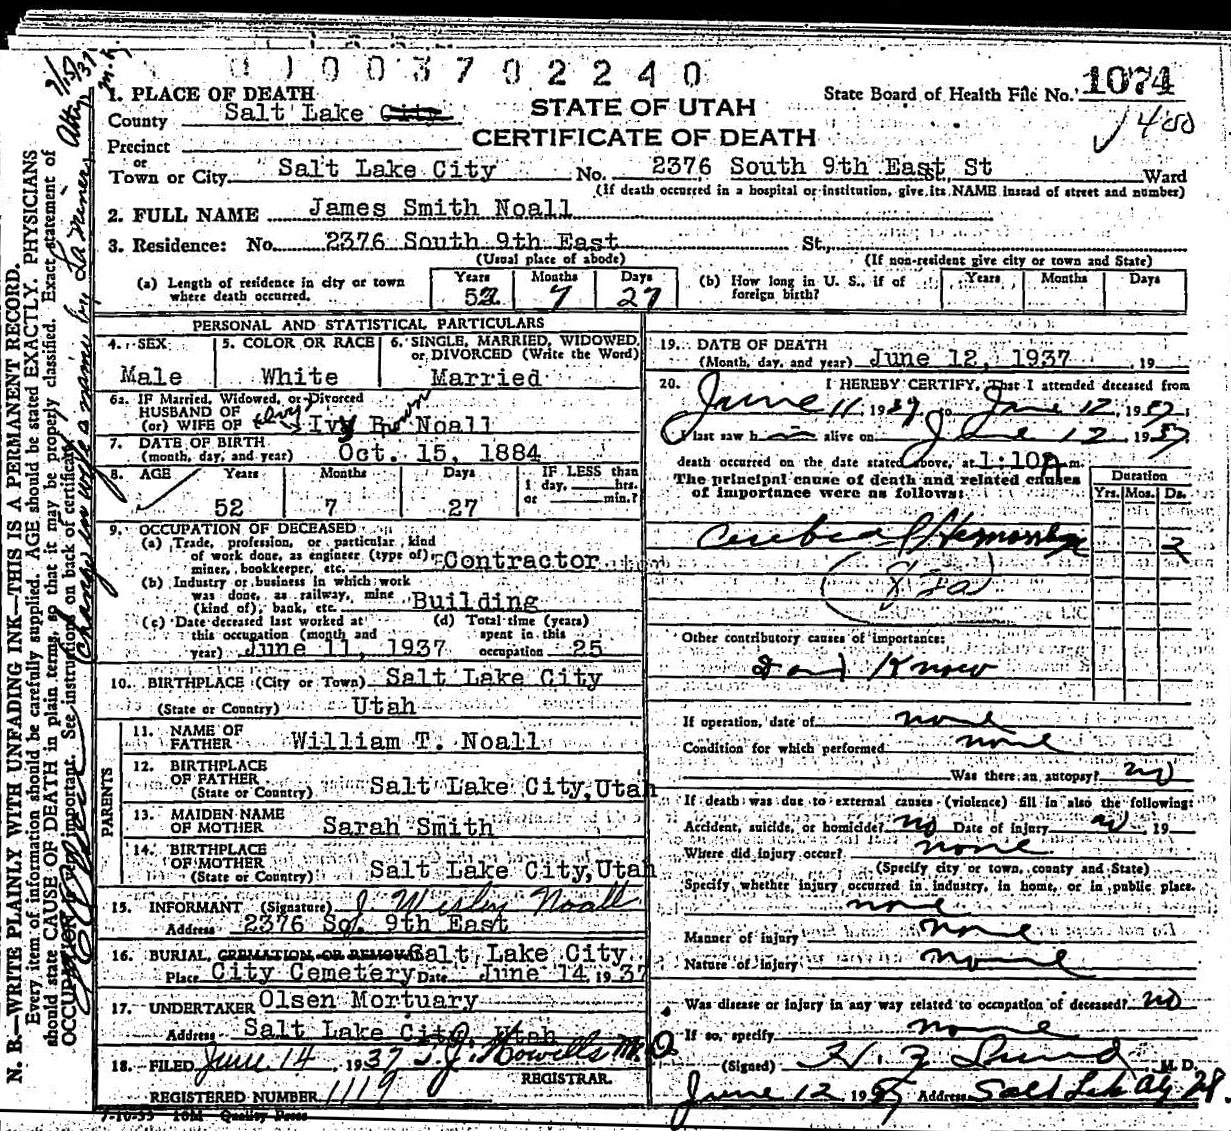 0 1 0 0 3 7 0 2 2 4 0
1. PLACE OF DEATH
County Salt Lake City
STATE OF UTAH
CERTIFICATE OF DEATH
State Board of Health File No. 1074
1400
Precinct
or
Town or City Salt Lake City No. 2376 South 9th East St Ward
(If death occurred in a hospital or institution, give its NAME instead of street and number)
2. FULL NAME James Smith Noall
3. Residence: No. 2376 South 9th East St.,
(Usual place of abode) (If non-resident give city or town and State)
(a) Length of residence in city or town where death occurred. Years 52 Months 7 Days 27
(b) How long in U. S., if of foreign birth? Years Months Days
PERSONAL AND STATISTICAL PARTICULARS
4. SEX Male
5. COLOR OR RACE White
6. SINGLE, MARRIED, WIDOWED, or DIVORCED (Write the Word) Married
6a. IF Married, Widowed, or Divorced
HUSBAND OF
(or) WIFE OF Ivy Noall
7. DATE OF BIRTH
(month, day, and year) Oct. 15, 1884
8. AGE Years Months Days IF LESS than
1 day, hrs.
or min.?
52 7 27
9. OCCUPATION OF DECEASED
(a) Trade, profession, or particular kind
of work done, as engineer (type of)
miner, bookkeeper, etc. Contractor
(b) Industry or business in which work
was done, as railway, mine
(kind of), bank, etc. Building
(c) Date deceased last worked at
this occupation (month and
year) June 11, 1937
(d) Total time (years)
spent in this
occupation 25
10. BIRTHPLACE (City or Town) Salt Lake City
(State or Country) Utah
PARENTS
11. NAME OF
FATHER William T. Noall
12. BIRTHPLACE
OF FATHER
(State or Country) Salt Lake City, Utah
13. MAIDEN NAME
OF MOTHER Sarah Smith
14. BIRTHPLACE
OF MOTHER
(State or Country) Salt Lake City, Utah
15. INFORMANT (Signature) J Wesley Noall
Address 2376 So. 9th East
16. BURIAL, CREMATION OR REMOVAL Salt Lake City
Place City Cemetery Date June 14, 1937
17. UNDERTAKER Olsen Mortuary
Address Salt Lake City, Utah
18. FILED June 14, 1937 T. J. Howells M. D.
REGISTRAR.
REGISTERED NUMBER 1119
7-10-35 10M Quality Press
19. DATE OF DEATH
(Month, day, and year) June 12, 1937, 19
20. I HEREBY CERTIFY, That I attended deceased from
June 11 1937 to June 12, 1937;
I last saw h alive on June 12 1937
death occurred on the date stated above, at 1:10A m.
The principal cause of death and related causes
of importance were as follows:
Duration
Yrs. Mos. Ds.
Cerebral Hemorrhage 2
Other contributory causes of importance:
Dont Know
If operation, date of none
Condition for which performed none
Was there an autopsy? no
If death was due to external causes (violence) fill in also the following:
Accident, suicide, or homicide? no Date of injury no 19
Where did injury occur? none
(Specify city or town, county and State)
Specify whether injury occurred in industry, in home, or in public place.
none
Manner of injury none
Nature of injury none
Was disease or injury in any way related to occupation of deceased? no
If so, specify none
(Signed) H. Z. Lund M. D.
June 12 1937 Address Salt Lake
N. B.—WRITE PLAINLY WITH UNFADING INK—THIS IS A PERMANENT RECORD.
Every item of information should be carefully supplied. AGE should be stated EXACTLY. PHYSICIANS
should state CAUSE OF DEATH in plain terms, so that it may be properly classified. Exact statement of
OCCUPATION is very important. See instructions on back of certificate.